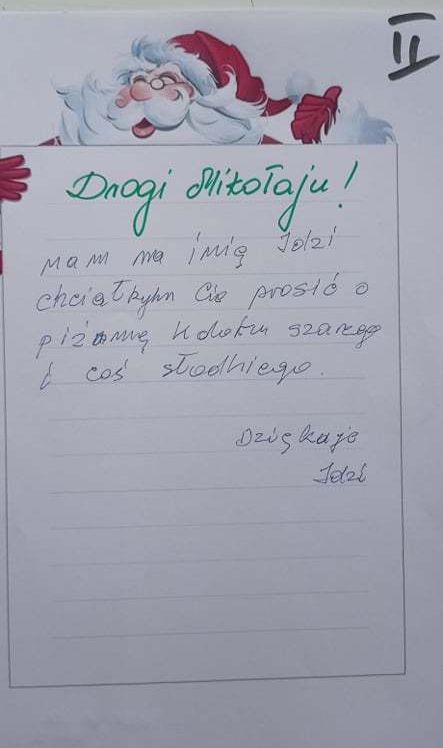 II
Drogi Mikołaju!
Mam na imię Idzi
chciałbym Cię prosić o
piżamę koloru szarego
i coś słodkiego.
Dziękuję
Idzi